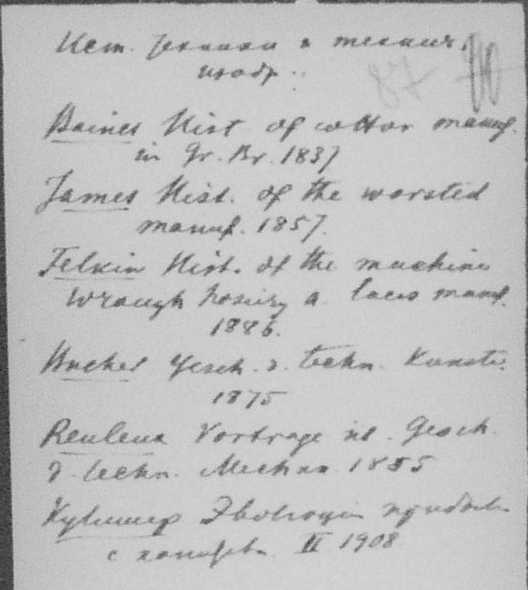 Ист. техники и технич.
изобр.
87 70
Baines Hist of cotton manuf.
in Gr. Br. 1837
James Hist. of the worsted
manuf. 1857.
Felkin Hist. of the machine
wrough hosiery a. laces manuf.
1886.
Bucher Gesch. d. techn. Kunste.
1875
Reuleux Vortrage ub. Gesch.
d. techn. Mechan. 1855
Кулишер Эволюция прибыли
с капитала II 1908